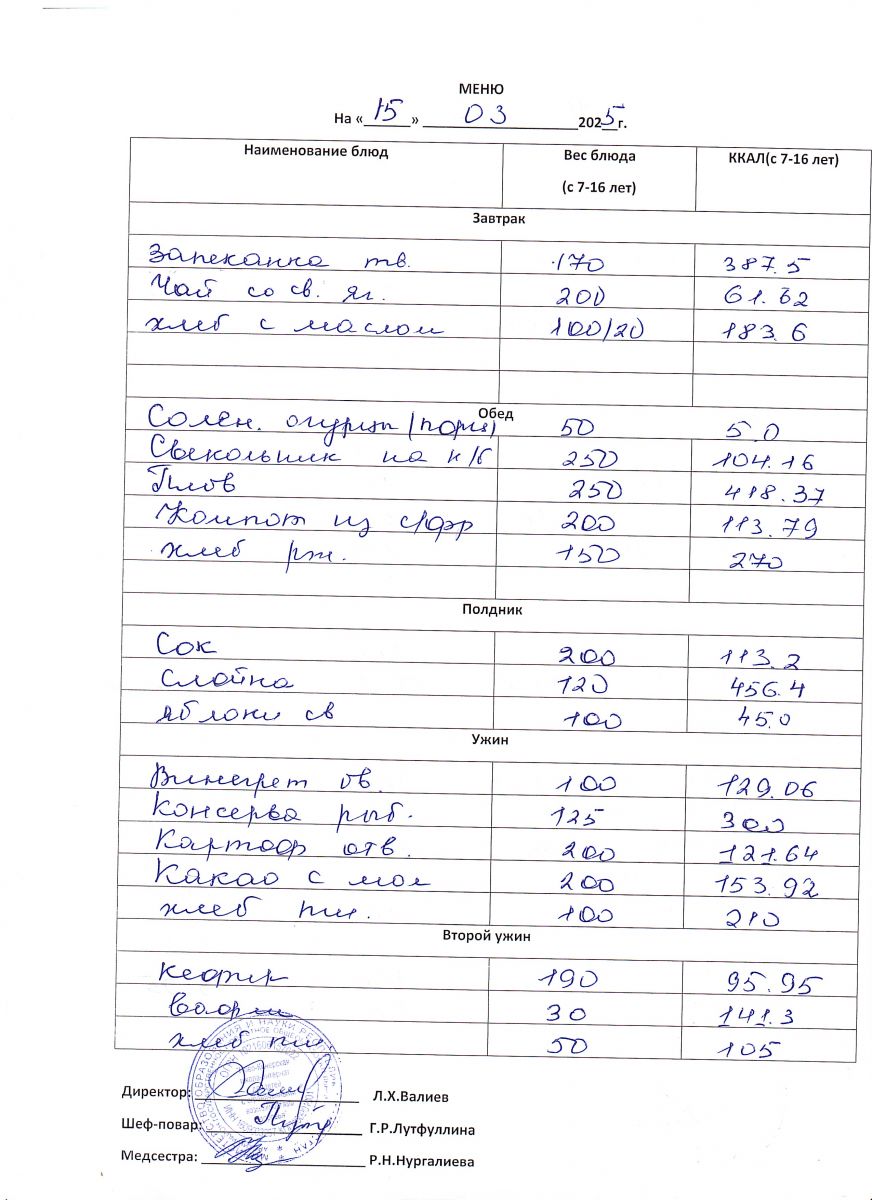 МЕНЮ
На «15» 03 2025г.
Наименование блюд Вес блюда (с 7-16 лет) ККАЛ(с 7-16 лет)
Завтрак
Запеканка тв. 170 387.5
Чай со св. яг. 200 61.62
хлеб с маслом 100/20 183.6
Обед
Солен. огурцы (порц) 50 5.0
Свекольник на к/б 250 104.16
Плов 250 418.37
Компот из с/фр 200 113.79
хлеб рж. 150 270
Полдник
Сок 200 113.2
Слойка 120 456.4
яблоки св 100 45.0
Ужин
Винегрет ов. 100 129.06
Консерва рыб. 125 300
Картоф отв. 200 121.64
Какао с мол 200 153.92
хлеб пш. 100 210
Второй ужин
кефир 190 95.95
вафли 30 141.3
хлеб пш 50 105
Директор: Л.Х.Валиев
Шеф-повар: Г.Р.Лутфуллина
Медсестра: Р.Н.Нургалиева